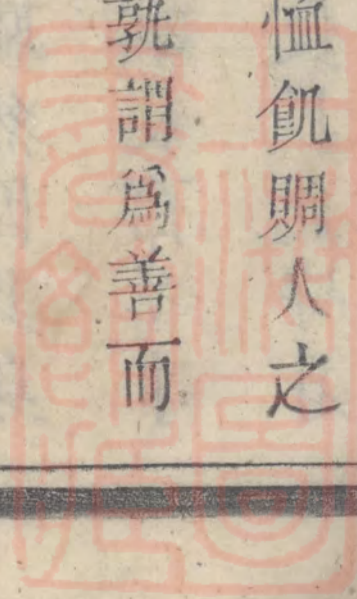 恤飢賙人之
孰謂爲善而